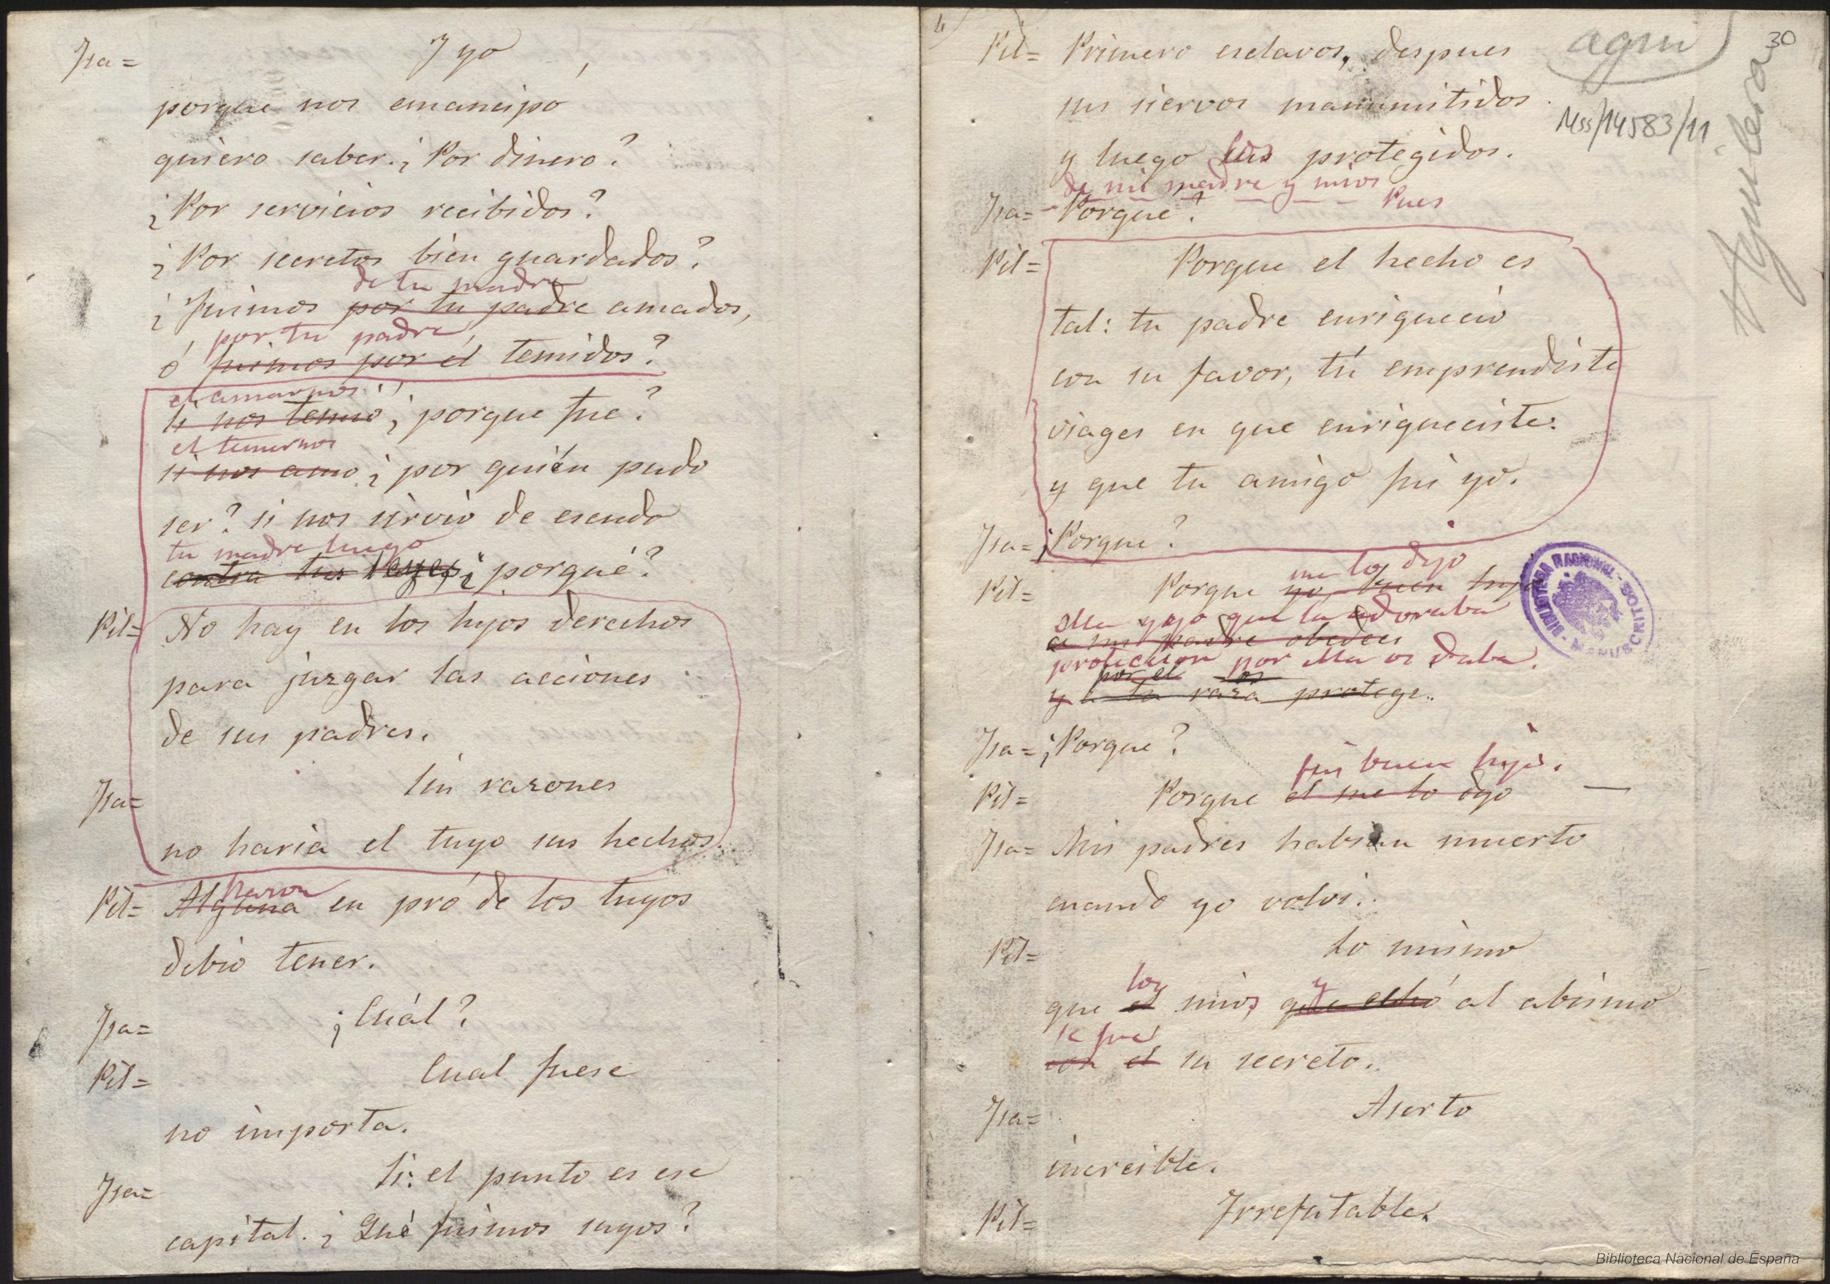 Isa= Y yo
porque nos emancipó
quiero saber. ¿Por dinero?
¿Por servicios recibidos?
¿Por secretos bien guardados?
de tu madre
¿Fuimos por tu padre amados,
por tu padre
ó fuimos por él temidos?
el amarnos
si nos temió ¿porque fue?
el temernos
si nos amo ¿por quién pudo
ser? si nos sirvió de escudo
tu madre luego
contra tus Reyes ¿porqué?
Pil= No hay en los hijos derechos
para juzgar las acciones
de sus padres.
Isa= Sin razones
no haria el tuyo sus hechos.
Pil= Alguna en pró de los tuyos
debio tener.
Isa= ¿Cuál?
Pil= Cual fuese
no importa.
Isa= Si: el punto es ese
capital. ¿Qué fuimos suyos?
Pil= Primero esclavos, despues
sus siervos manumitidos
y luego sus protegidos.
de mi madre y mios Pues
Isa= Porque?
Pil= Porque el hecho es
tal: tu padre enriqueció
con su favor, tú emprendiste
viages en que enriqueciste:
y que tu amigo fuí yo.
Isa= ¿Porque?
me lo dijo
Pil= Porque yo, buen hijo
ella y yo que la adoraba
a mi padre obedeci
proteccion por ella os daba.
por el los
y a tu raza protege.
Isa= ¿Porque?
fuí buen hijo.
Pil= Porque el me lo dijo
Isa= Mis padres habian muerto
cuando yo volvi.
Pil= Lo mismo
los y
que el mios que echó al abismo
se fue
con el su secreto.
Isa= Aserto
increible.
Pil= Irrefutable.
agui
30
Mss/14583/11
Aguilera
BIBLIOTECA NACIONAL - MANUSCRITOS
Biblioteca Nacional de España